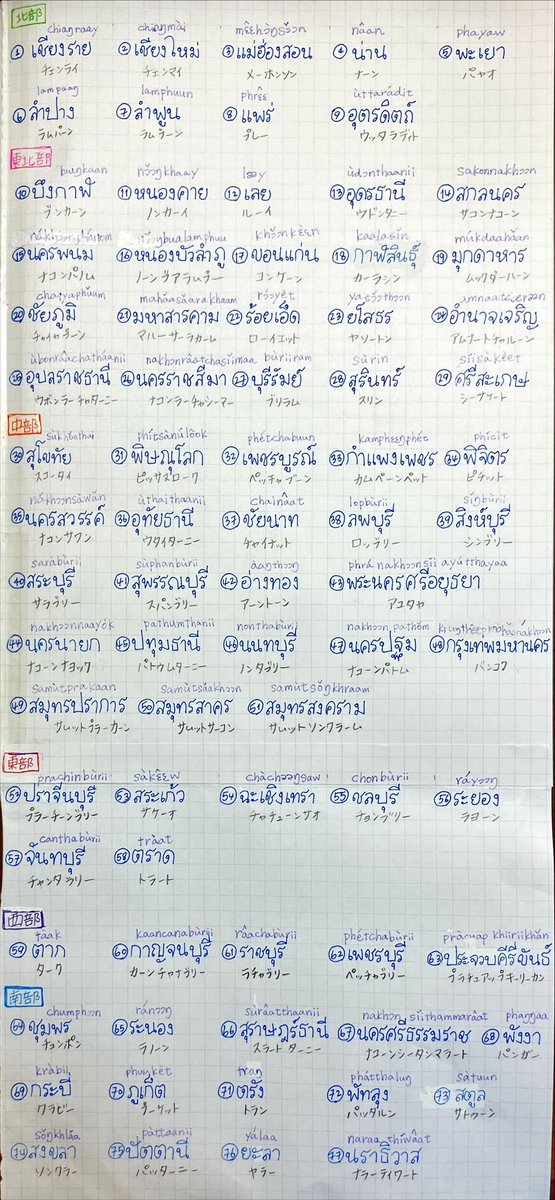 北部
chiaŋraay chiaŋmài mɛ̂ɛhɔ̂ŋsɔ̌ɔn nâan phayaw
① เชียงราย ② เชียงใหม่ ③ แม่ฮ่องสอน ④ น่าน ⑤ พะเยา
チェンライ チェンマイ メーホンソン ナーン パヤオ
lampaaŋ lamphuun phrɛ̂ɛ ùttarádìt
⑥ ลำปาง ⑦ ลำพูน ⑧ แพร่ ⑨ อุตรดิตถ์
ラムパーン ラムプーン プレー ウッタラディト
東北部
bʉŋkaan nɔ̌ɔŋkhaay ləəy ùdɔnthaanii sakonnakhɔɔn
⑩ บึงกาฬ ⑪ หนองคาย ⑫ เลย ⑬ อุดรธานี ⑭ สกลนคร
ブンカーン ノンカーイ ルーイ ウドンタニー サコンナコーン
nákhɔɔnphanom nɔ̌ɔŋbualamphuu khɔ̌ɔnkɛ̀ɛn kaalasǐn múkdaahǎan
⑮ นครพนม ⑯ หนองบัวลำภู ⑰ ขอนแก่น ⑱ กาฬสินธุ์ ⑲ มุกดาหาร
ナコンパノム ノーンブアラムプー コンケーン カーラシン ムックダーハーン
chaiyaphuum mahǎasǎarakhaam rɔ́ɔyèt yasǒothɔɔn amnaatcarəən
⑳ ชัยภูมิ ㉑ มหาสารคาม ㉒ ร้อยเอ็ด ㉓ ยโสธร ㉔ อำนาจเจริญ
チャイヤプーン マハーサーラカーム ローイエット ヤソートン アムナートチャルーン
ùbonrâachathaanii nakhɔnrâatchasiimaa bùriiram sùrin sǐisakèet
㉕ อุบลราชธานี ㉖ นครราชสีมา ㉗ บุรีรัมย์ ㉘ สุรินทร์ ㉙ ศรีสะเกษ
ウボンラーチャターニー ナコンラーチャシーマー ブリラム スリン シーサケート
中部
sùkhǒothai phítsànúlôok phétchabuun kamphɛɛŋphét phícìt
㉚ สุโขทัย ㉛ พิษณุโลก ㉜ เพชรบูรณ์ ㉝ กำแพงเพชร ㉞ พิจิตร
スコータイ ピッサヌローク ペッチャブーン カムペーンペット ピチット
nákhɔɔnsàwǎn ùthaithaanii chainâat lopbùrii sǐŋbùrii
㉟ นครสวรรค์ ㊱ อุทัยธานี ㊲ ชัยนาท ㊳ ลพบุรี ㊴ สิงห์บุรี
ナコンサワン ウタイターニー チャイナット ロッブリー シンブリー
saràbùrii sùphanbùrii àaŋthɔɔŋ phrá nakhɔɔnsii ayútthayaa
㊵ สระบุรี ㊶ สุพรรณบุรี ㊷ อ่างทอง ㊸ พระนครศรีอยุธยา
サラブリー スパンブリー アーントーン アユタヤ
nakhɔɔnnaayók pathumthanii nonthabùrii nakhɔɔn pathǒm
㊹ นครนายก ㊺ ปทุมธานี ㊻ นนทบุรี ㊼ นครปฐม ㊽ กรุงเทพมหานคร
ナコーンナヨック パトゥムターニー ノンタブリー ナコーンパトム バンコク
samùtprakaan samùtsǎakhɔɔn samùtsǒŋkhraam
㊾ สมุทรปราการ ㊿ สมุทรสาคร 51 สมุทรสงคราม
サムットプラーカーン サムットサーコン サムットソンクラーム
東部
prachinbùrii sàkɛ̂ɛw chàchəəŋsaw chonbùrii ráyɔɔŋ
ปราจีนบุรี 53 สระแก้ว 54 ฉะเชิงเทรา 55 ชลบุรี 56 ระยอง
プラーチーンブリー サケーオ チャチューンサオ チョンブリー ラヨーン
canthabùrii tràat
57 จันทบุรี 58 ตราด
チャンタブリー トラート
西部
taak kaancanabùrii râachabùrii phétchabùrii pracuap khiiriikhǎn
59 ตาก 60 กาญจนบุรี 61 ราชบุรี 62 เพชรบุรี 63 ประจวบคีรีขันธ์
ターク カーンチャナブリー ラチャブリー ペッチャブリー プラチュアップキーリーカン
南部
chumphɔɔn ránɔɔŋ sùrâatthaanii nakhɔn sǐithammarâat phaŋŋaa
64 ชุมพร 65 ระนอง 66 สุราษฎร์ธานี 67 นครศรีธรรมราช 68 พังงา
チュンポン ラノーン スラートターニー ナコーンシータンマラート パンガー
kràbìi phuukèt traŋ phátthaluŋ sàtuun
69 กระบี่ 70 ภูเก็ต 71 ตรัง 72 พัทลุง 73 สตูล
クラビー プーケット トラン パッタルン サトゥーン
sǒŋkhlǎa pàttaanii yálaa naraa thíwâat
74 สงขลา 75 ปัตตานี 76 ยะลา 77 นราธิวาส
ソンクラー パッターニー ヤラー ナラーティワート